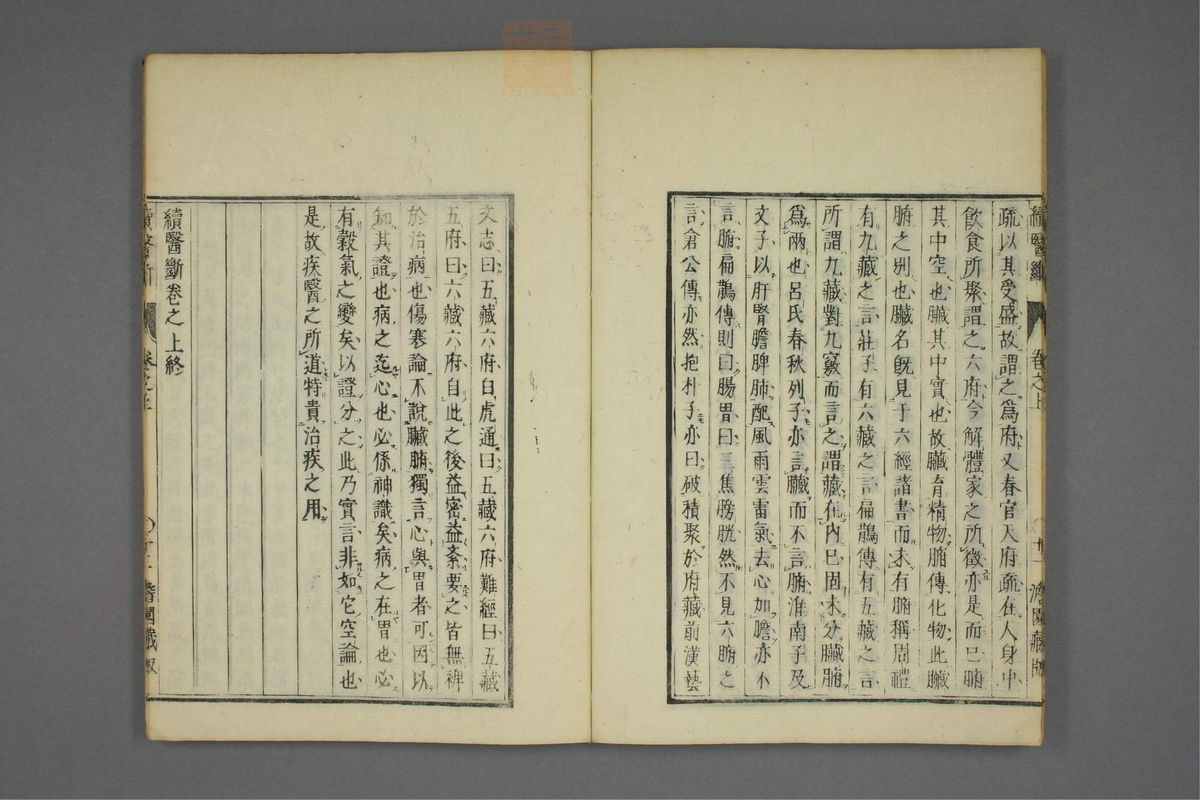 疏以其受盛故謂之爲府又春官天府疏在人身中
飮食所聚謂之六府今解體家之所徵亦是而已腑
其中空也臟其中實也故臟育精物腑傳化物此臟
腑之別也臟名旣見于六經諸書而未有腑稱周禮
有九藏之言莊子有六藏之言扁鵲傳有五藏之言
所謂九藏對九竅而言之謂藏在內已固未分臟腑
爲兩也呂氏春秋列子亦言臟而不言腑淮南子及
文子以肝腎膽脾肺配風雨雲雷氣去心加膽亦不
言腑扁鵲傳則曰腸胃曰三焦膀胱然不見六腑之
言倉公傳亦然抱朴子亦曰破積聚於府藏前漢藝
續醫斷 卷之上 澹園藏版
文志曰五藏六府白虎通曰五藏六府難經曰五藏
五府曰六藏六府自此之後益密益紊要之皆無裨
於治病也傷寒論不說臟腑獨言心與胃者可因以
知其證也病之迄心也必係神識矣病之在胃也必
有穀氣之變矣以證分之此乃實言非如它空論也
是故疾醫之所道特貴治疾之用
續醫斷卷之上終
續醫斷 卷之上 澹園藏版